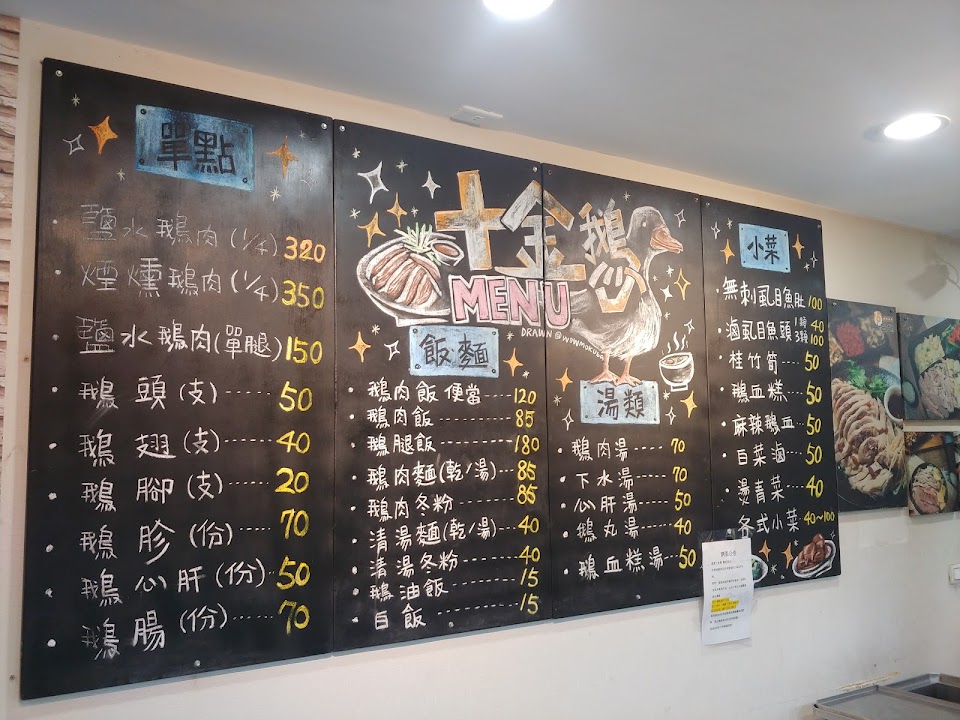 單點
鹽水鵝肉(1/4) 320
煙燻鵝肉(1/4) 350
鹽水鵝肉(單腿) 150
鵝頭(支)------ 50
鵝翅(支)----- 40
鵝腳(支)---- 20
鵝胗(份)----- 70
鵝心肝(份)-- 50
鵝腸(份)---- 70
十金鵝
MENU
飯麵
鵝肉飯便當---- 120
鵝肉飯------- 85
鵝腿飯------- 180
鵝肉麵(乾/湯)--- 85
鵝肉冬粉------ 85
清湯麵(乾/湯)-- 40
清湯冬粉------ 40
鵝油飯------- 15
白飯-------- 15
湯類
鵝肉湯---- 70
下水湯---- 70
心肝湯---- 50
鵝丸湯---- 40
鵝血糕湯-- 50
小菜
無刺虱目魚肚 100
滷虱目魚頭 1顆 40
3顆 100
桂竹筍---- 50
鵝血糕---- 50
麻辣鵝血-- 50
白菜滷---- 50
燙青菜--- 40
各式小菜 40~100